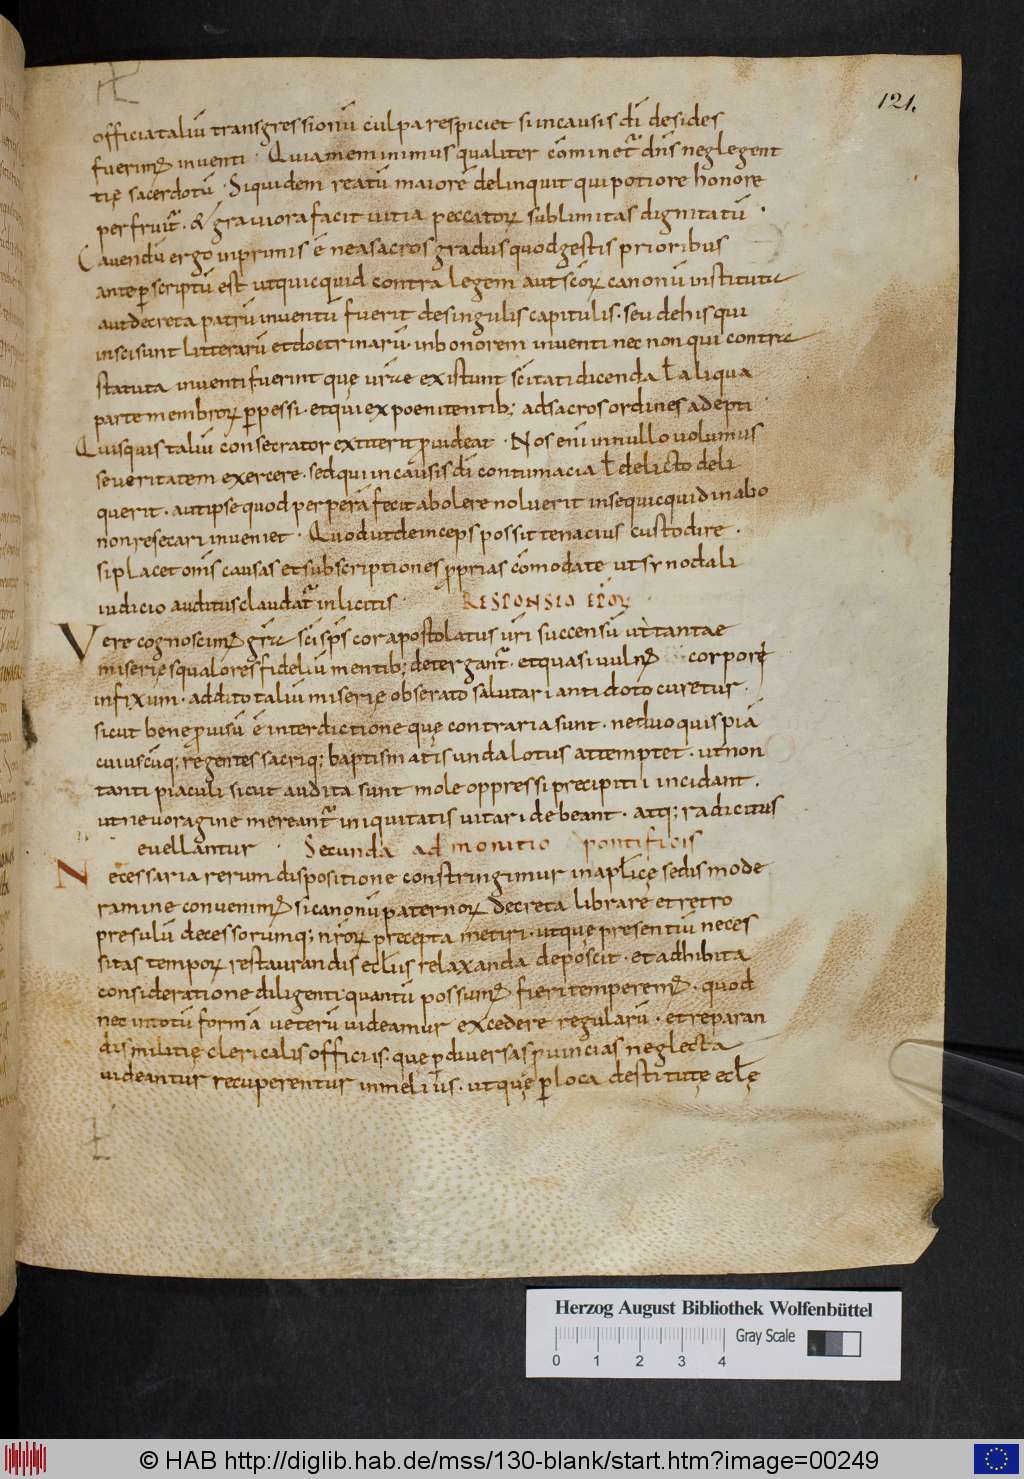 121.
officia taliū transgressionū culpa respiciet si incausis dī desides
fuerimꝰ inventi · Quia meminimus qualiter cōminet᷑ dn̄s neglegent
tię sacerdotū · Siquidem reatū maiorē delinquit qui potiore honore
perfruit᷑ · & graviora facit vitia peccatoꝝ sublimitas dignitatū ·
Cavendū ergo inprimis ē ne ad sacros gradus quod gestis prioribus
ante p̱scriptū est ut quicquid contra legem aut scōꝝ canonū instituta
aut decreta patrū inventū fuerit de singulis capitulis · seu de his qui
inscii sunt litterarū et doctrinarū · in bonorem inventi nec non qui contra
statuta inventi fuerint quę ur̄ae existunt sc̄itati dicenda ł aliqua
parte membroꝝ p̱pessi · et qui ex poenitentib; ad sacros ordines adepti
Quisquis taliū consecrator extiterit p̱videat · Nos enī in nullo volumus
severitatem exercere · sed qui in causis dī contumacia ł delicto deli
querit · aut ipse quod perperā fecit abolere noluerit in se quicquid in alio
non resecari inveniet · Quod ut deinceps possit tenacius custodire ·
si placet om̄s causas et subscriptiones p̱prias cōmodate ut synodali
iudicio aditus claudat᷑ inlicitis · RESPONSIO EPŌꝜ
Vere cognoscimꝰ gr̄ae sc̄i sp̄s cor apostolatus ur̄i succensū ut tantae
miserię squalores fideliū mentib; detergant᷑ · et quasi vulnꝰ corpore
infixum · addito taliū miserię obserato salutari antidoto curetur ·
sicut bene p̱visū ē interdictione quę contraria sunt · ne duo quispiā
cuiuscūq; regentes sacriq; baptismatis unda lotus attemptet · ut non
tanti piaculi sicut audita sunt mole oppressi precipitii incidant ·
ut ne voragine mereant᷑ iniquitatis vitari debeant · atq; radicitus
evellantur · Secunda admonitio pontificis
Necessaria rerum dispositione constringimur in apl̄icę sedis mode
ramine convenimꝰ si canonū paternoꝝ decreta librare et retro
presulū decessorumq; nr̄oꝝ precepta metiri · ut quę presentiū neces
sitas tempoꝝ restaurandis ecl̄iis relaxanda deposcit · et adhibita
consideratione diligenti quantū possumꝰ fieri temperemꝰ · quod
nec in totū formā veterū videamur excedere regularū · et reparan
dis militię clericalis officiis · que p̱ diversas p̱vincias neglecta
videantur recuperentur in melius · ut quę p̱ loca destitutę ecl̄ę
Herzog August Bibliothek Wolfenbüttel
Gray Scale
0 1 2 3 4
© HAB http://diglib.hab.de/mss/130-blank/start.htm?image=00249